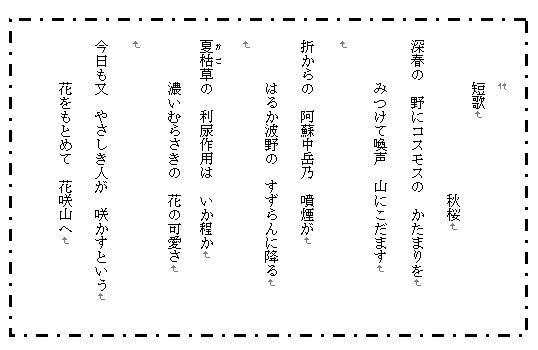 短歌
秋桜
深春の　野にコスモスの　かたまりを
みつけて喚声　山にこだます
折からの　阿蘇中岳乃　噴煙が
はるか波野の　すずらんに降る
夏枯草の　利尿作用は　いか程か
濃いむらさきの　花の可愛さ
今日も又　やさしき人が　咲かすという
花をもとめて　花咲山へ